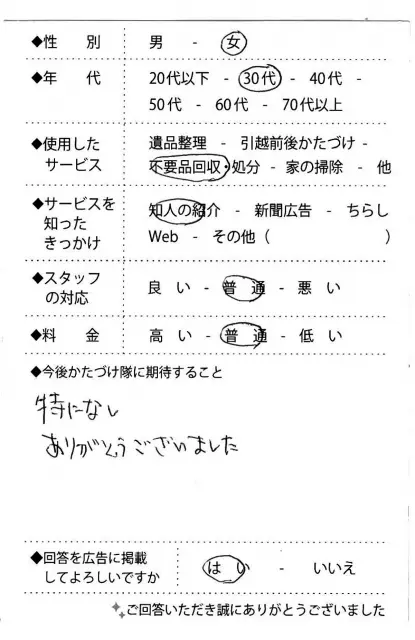 ◆性 別 男 - 女
◆年 代 20代以下 - 30代 - 40代 -
50代 - 60代 - 70代以上
◆使用した 遺品整理 - 引越前後かたづけ -
サービス 不要品回収・処分 - 家の掃除 - 他
◆サービスを 知人の紹介 - 新聞広告 - ちらし
知った Web - その他 ( )
きっかけ
◆スタッフ 良 い - 普 通 - 悪 い
の対応
◆料 金 高 い - 普 通 - 低 い
◆今後かたづけ隊に期待すること
特になし
ありがとうございました
◆回答を広告に掲載 は い - いいえ
してよろしいですか
ご回答いただき誠にありがとうございました